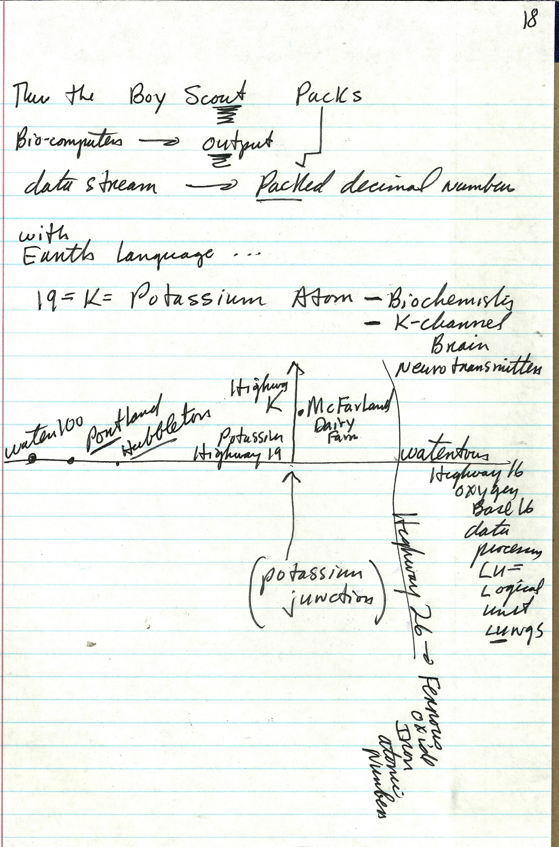 18
Thru the Boy Scout Packs
Bio-computers → output
data stream → Packed decimal number
with
Earth Language ...
19 = K = Potassium Atom – Biochemistry
– K-channel
Brain
Neurotransmitter
Highway
K
McFarland
Dairy
Farm
Waterloo
Portland
Hubbleton
Potassium
Highway 19
Watertown
Highway 16
oxygen
Base 16
data
process
LU=
Logical
unit
Lungs
(potassium
junction)
Highway 26 → Ferrous
oxide
Iron
atomic
Number